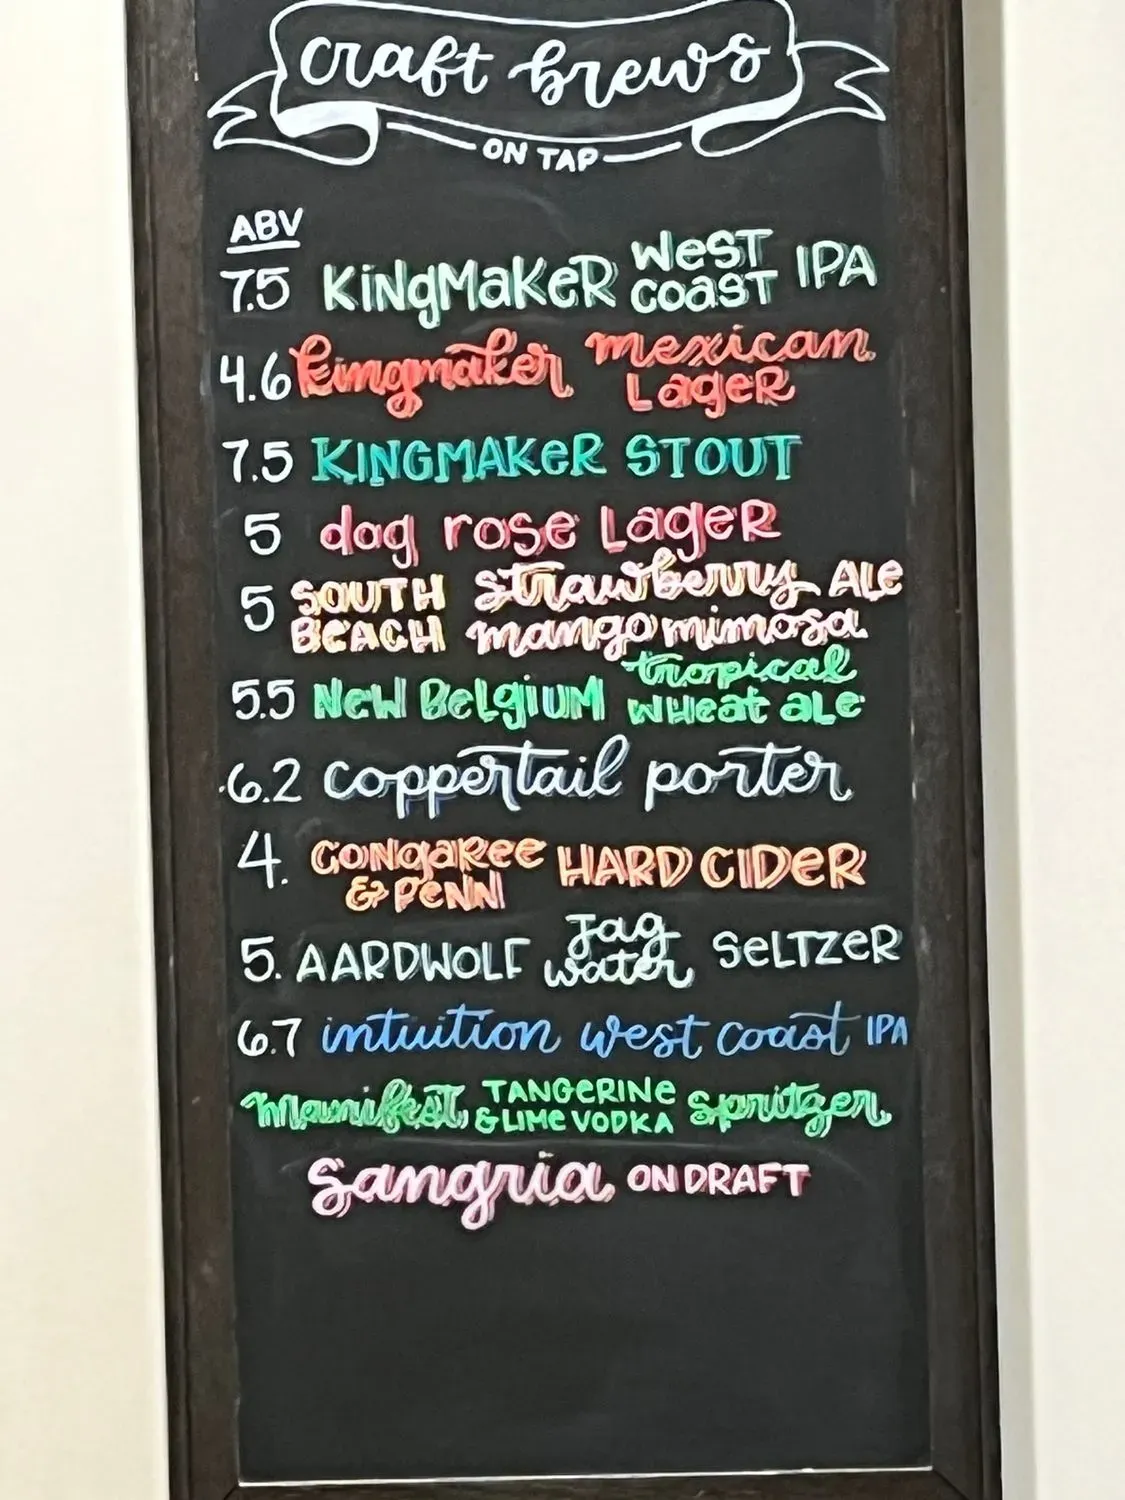 craft brews
ON TAP
ABV
7.5 KINgMaKeR WeST COaST IPA
4.6 kingmaker mexican LageR
7.5 KINGMAKeR STOUT
5 dog rose LageR
5 SOUTH BEACH strawberry mango mimosa ALe
5.5 NeW BeLgiUM tropical WHeat aLe
6.2 coppertail porter
4. CONgaRee & PENN HARD CIDeR
5. AARDWOLF Jag water SeLTZeR
6.7 intuition west coast IPA
Manifest TANGeRINe & LIMe VODKA Spritzer
Sangria ON DRAFT